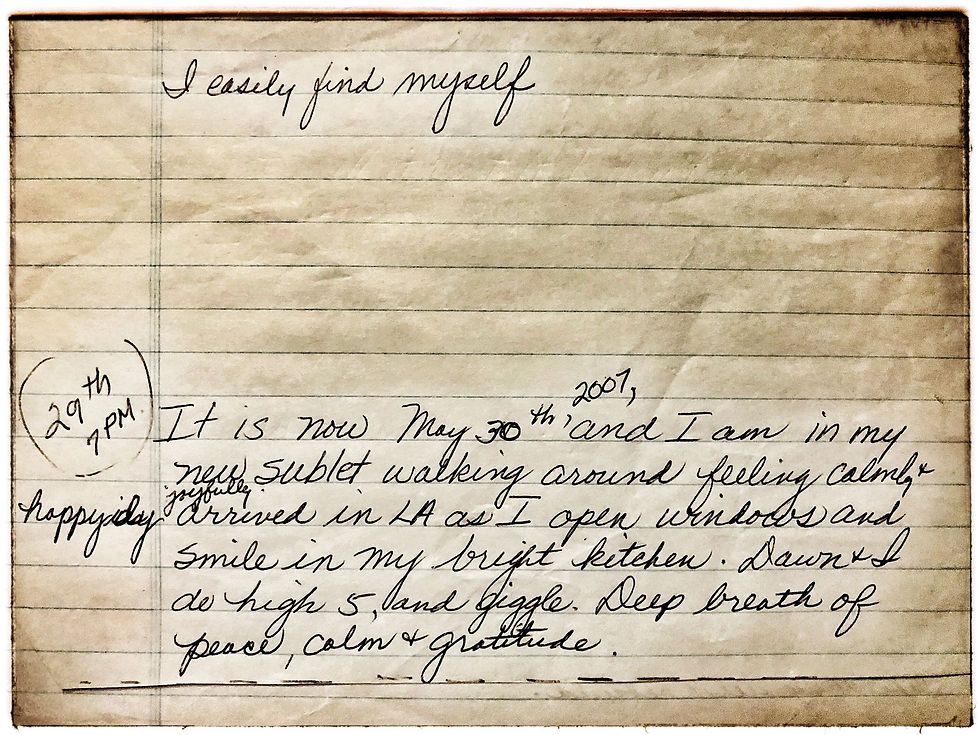 I easily find myself
29th
7PM
happy day
2007,
It is now May 30th, and I am in my
new sublet walking around feeling calmly &
joyfully
arrived in LA as I open windows and
smile in my bright kitchen. Dawn & I
do high 5, and giggle. Deep breath of
peace, calm & gratitude.